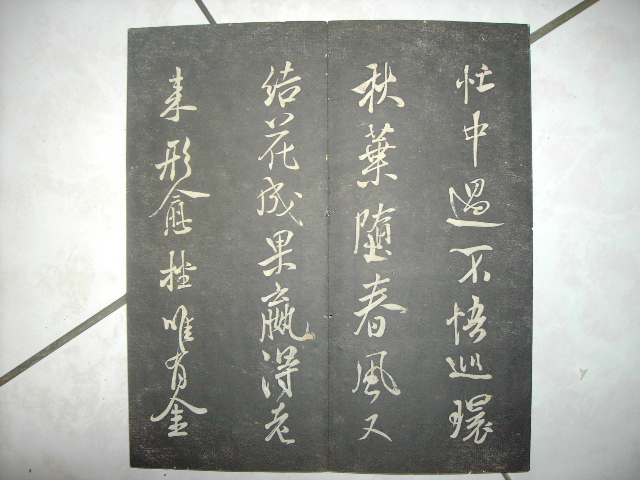 忙中過不悟巡環
秋葉墮春風又
結花成果贏得老
来形愈拙唯有金